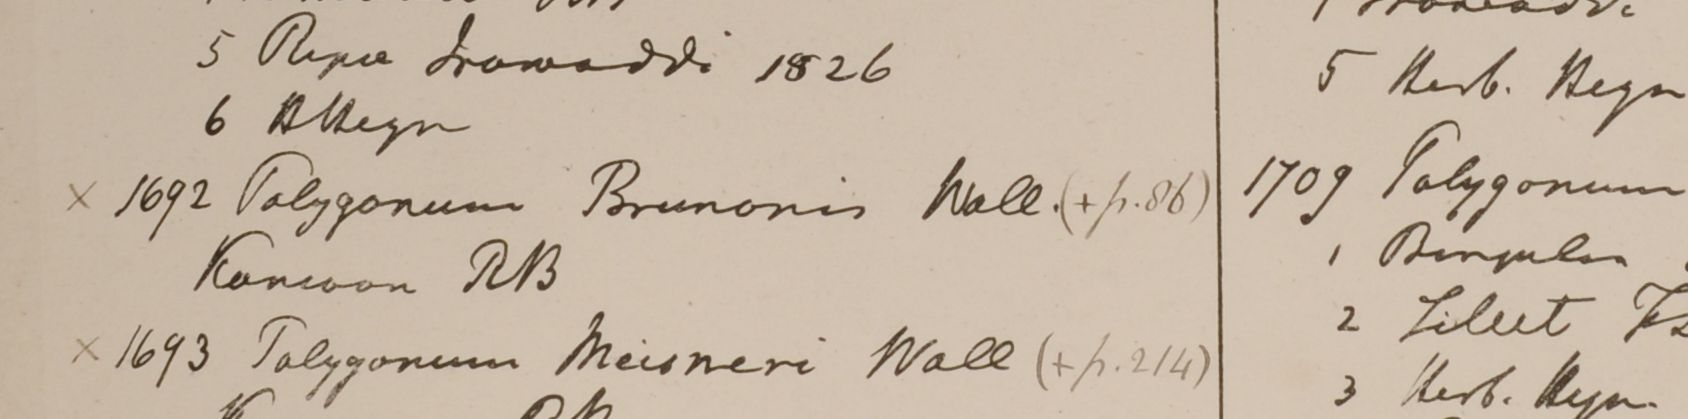 5 Ripae Irawaddi 1826
6 HHeyn
× 1692 Polygonum Brunonis Wall. (+p.86)
Kamoon RB
× 1693 Polygonum Meisneri Wall (+p.214)
5 Herb. Heyn
1709 Polygonum
1
2
3 Herb. Heyn.